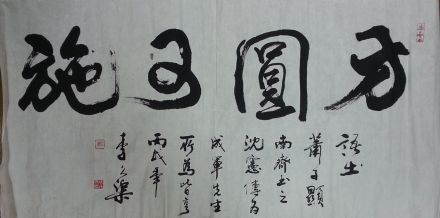 方圓可施
語出
蕭子顯
南齊書之
沈憲傳為
成軍先生
所為皆亨
丙戌年
李